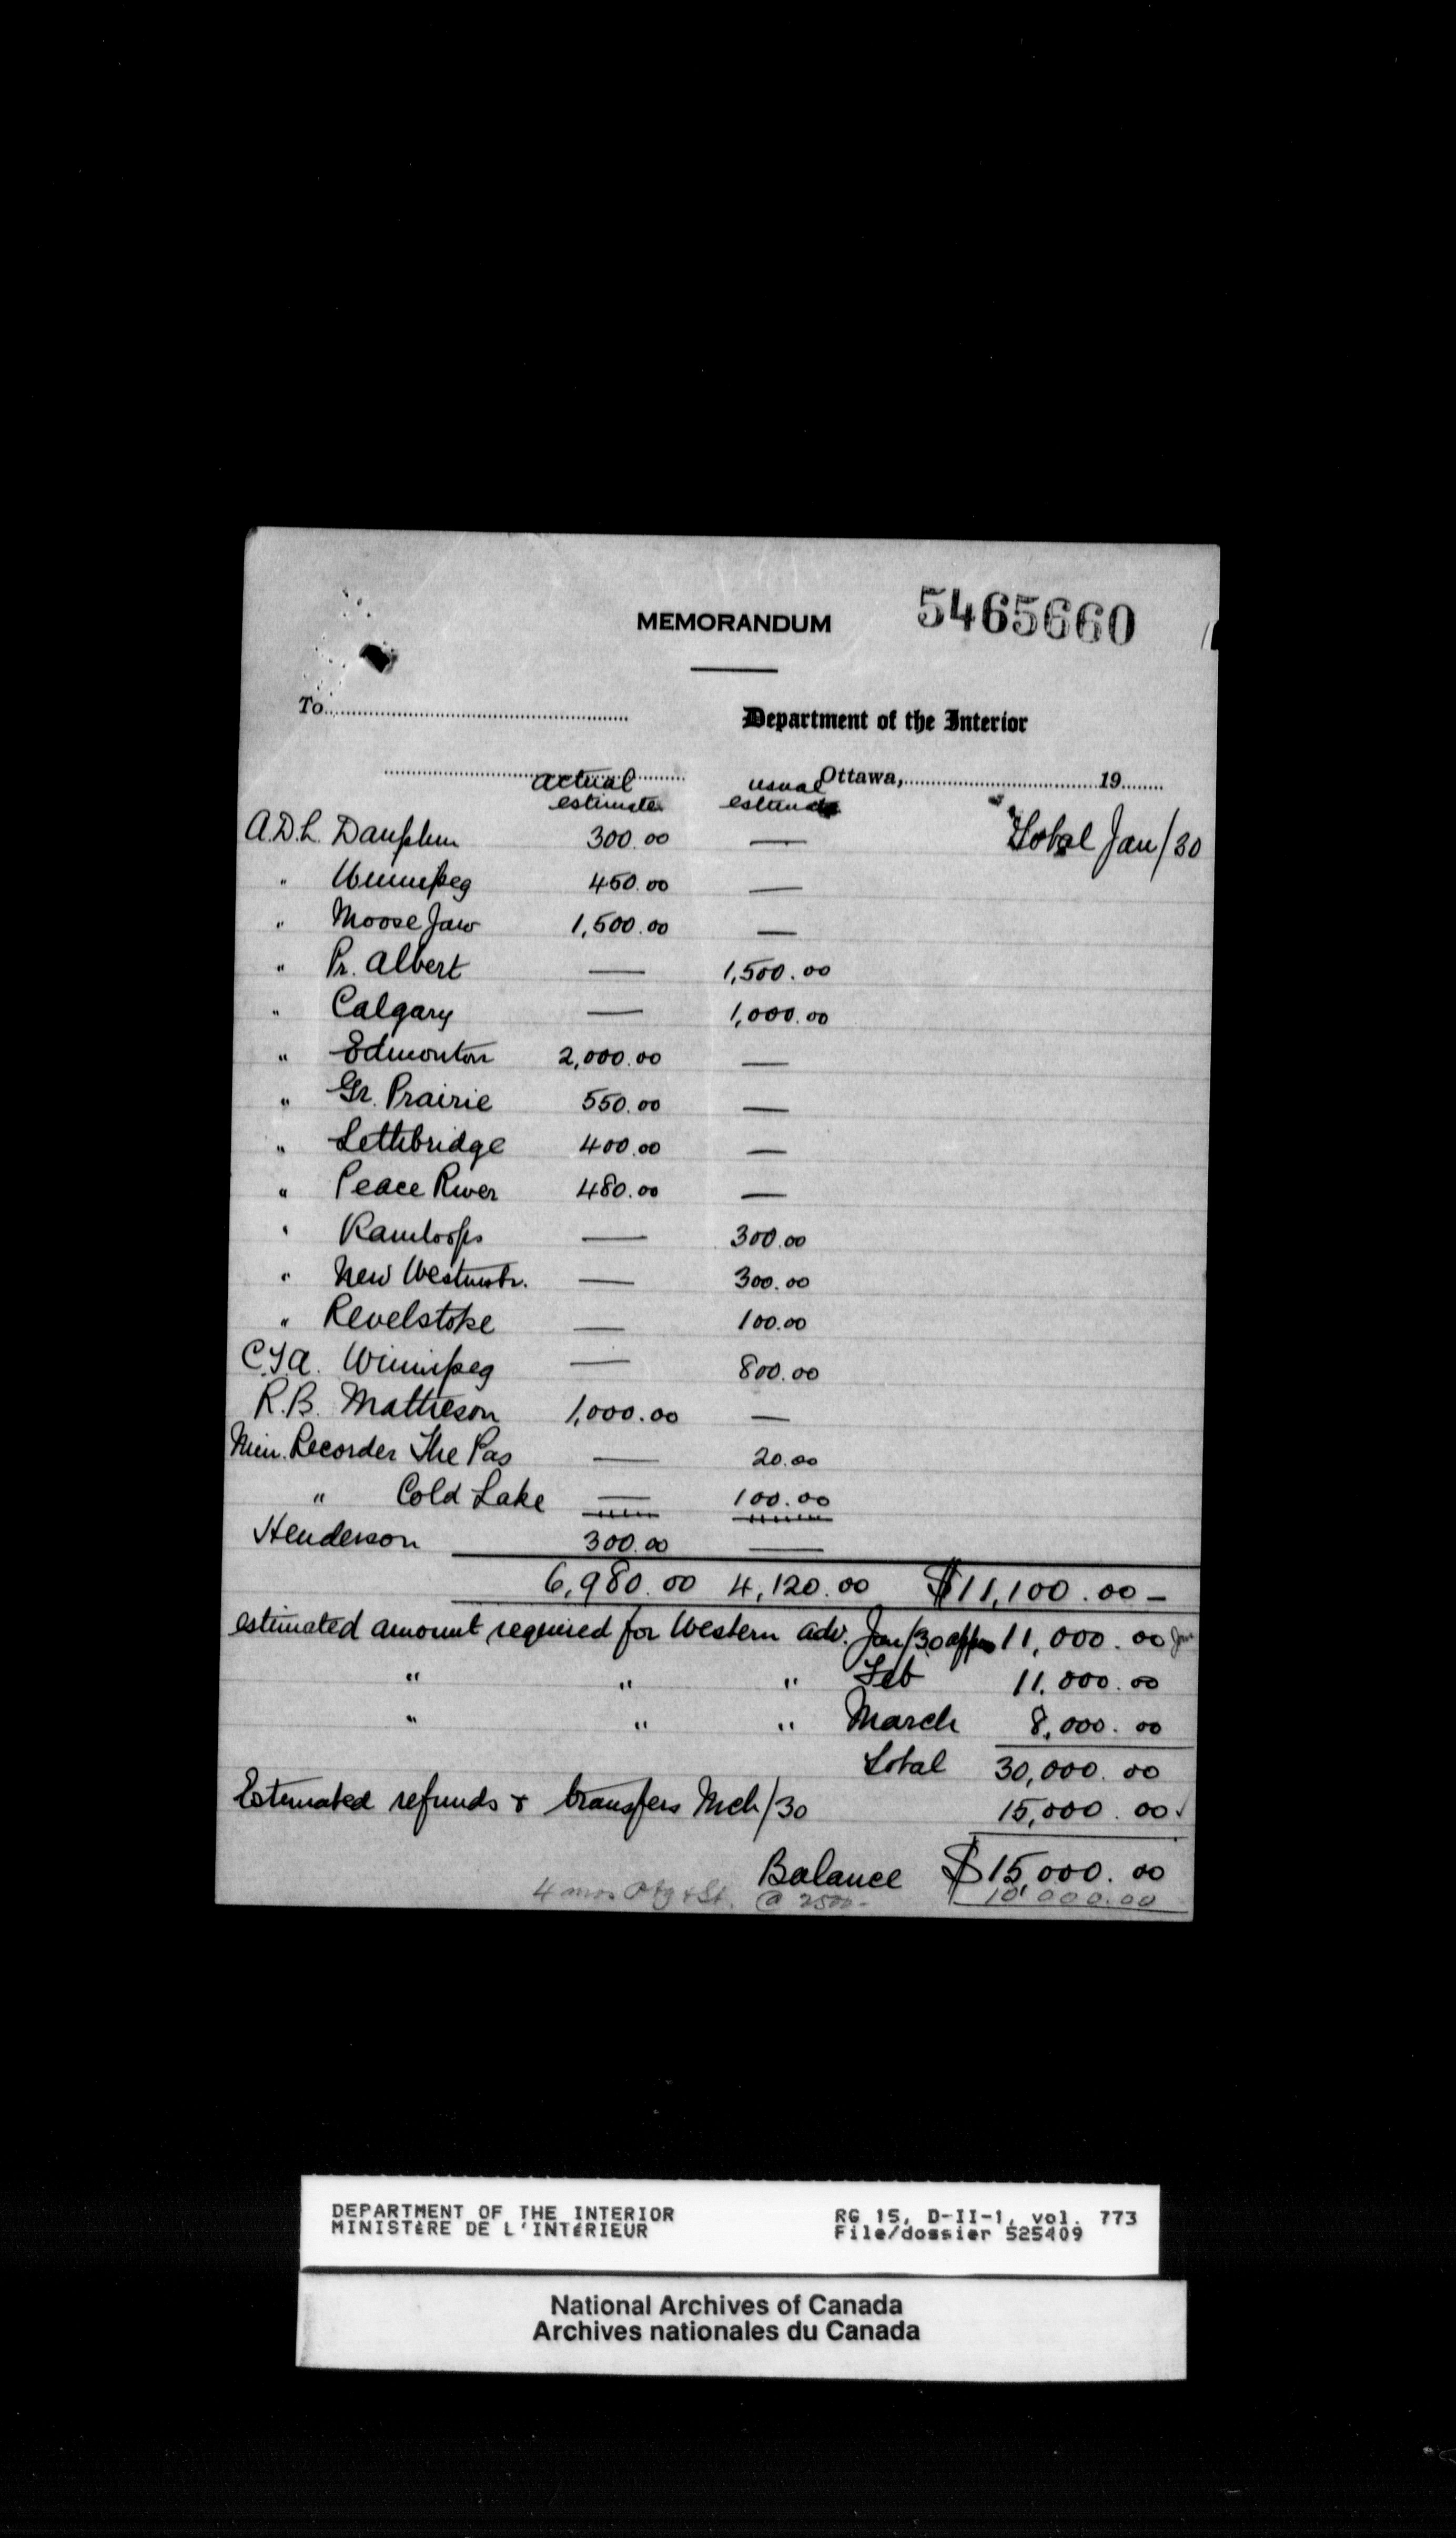 MEMORANDUM 5465660
To
Department of the Interior
Ottawa, 19
actual estimate usual estimate Total Jan/30
A.D.L. Dauphin 300.00 —
" Winnipeg 450.00 —
" Moose Jaw 1,500.00 —
" Pr. Albert — 1,500.00
" Calgary — 1,000.00
" Edmonton 2,000.00 —
" Gr. Prairie 550.00 —
" Lethbridge 400.00 —
" Peace River 480.00 —
" Kamloops — 300.00
" New Westmstr. — 300.00
" Revelstoke — 100.00
C.T.A. Winnipeg — 800.00
R.B. Matheson 1,000.00 —
Min. Recorder The Pas — 20.00
" Cold Lake — 100.00
Henderson 300.00 —
6,980.00 4,120.00 $11,100.00 —
estimated amount required for Western adv. Jan/30 appx 11,000.00
" " " Feb 11,000.00
" " " March 8,000.00
Total 30,000.00
Estimated refunds & transfers Mch/30 15,000.00
Balance $15,000.00
4 mos @ 2500- 10,000.00
DEPARTMENT OF THE INTERIOR RG 15, D-II-1, vol. 773
MINISTÈRE DE L'INTÉRIEUR File/dossier 525409
National Archives of Canada
Archives nationales du Canada